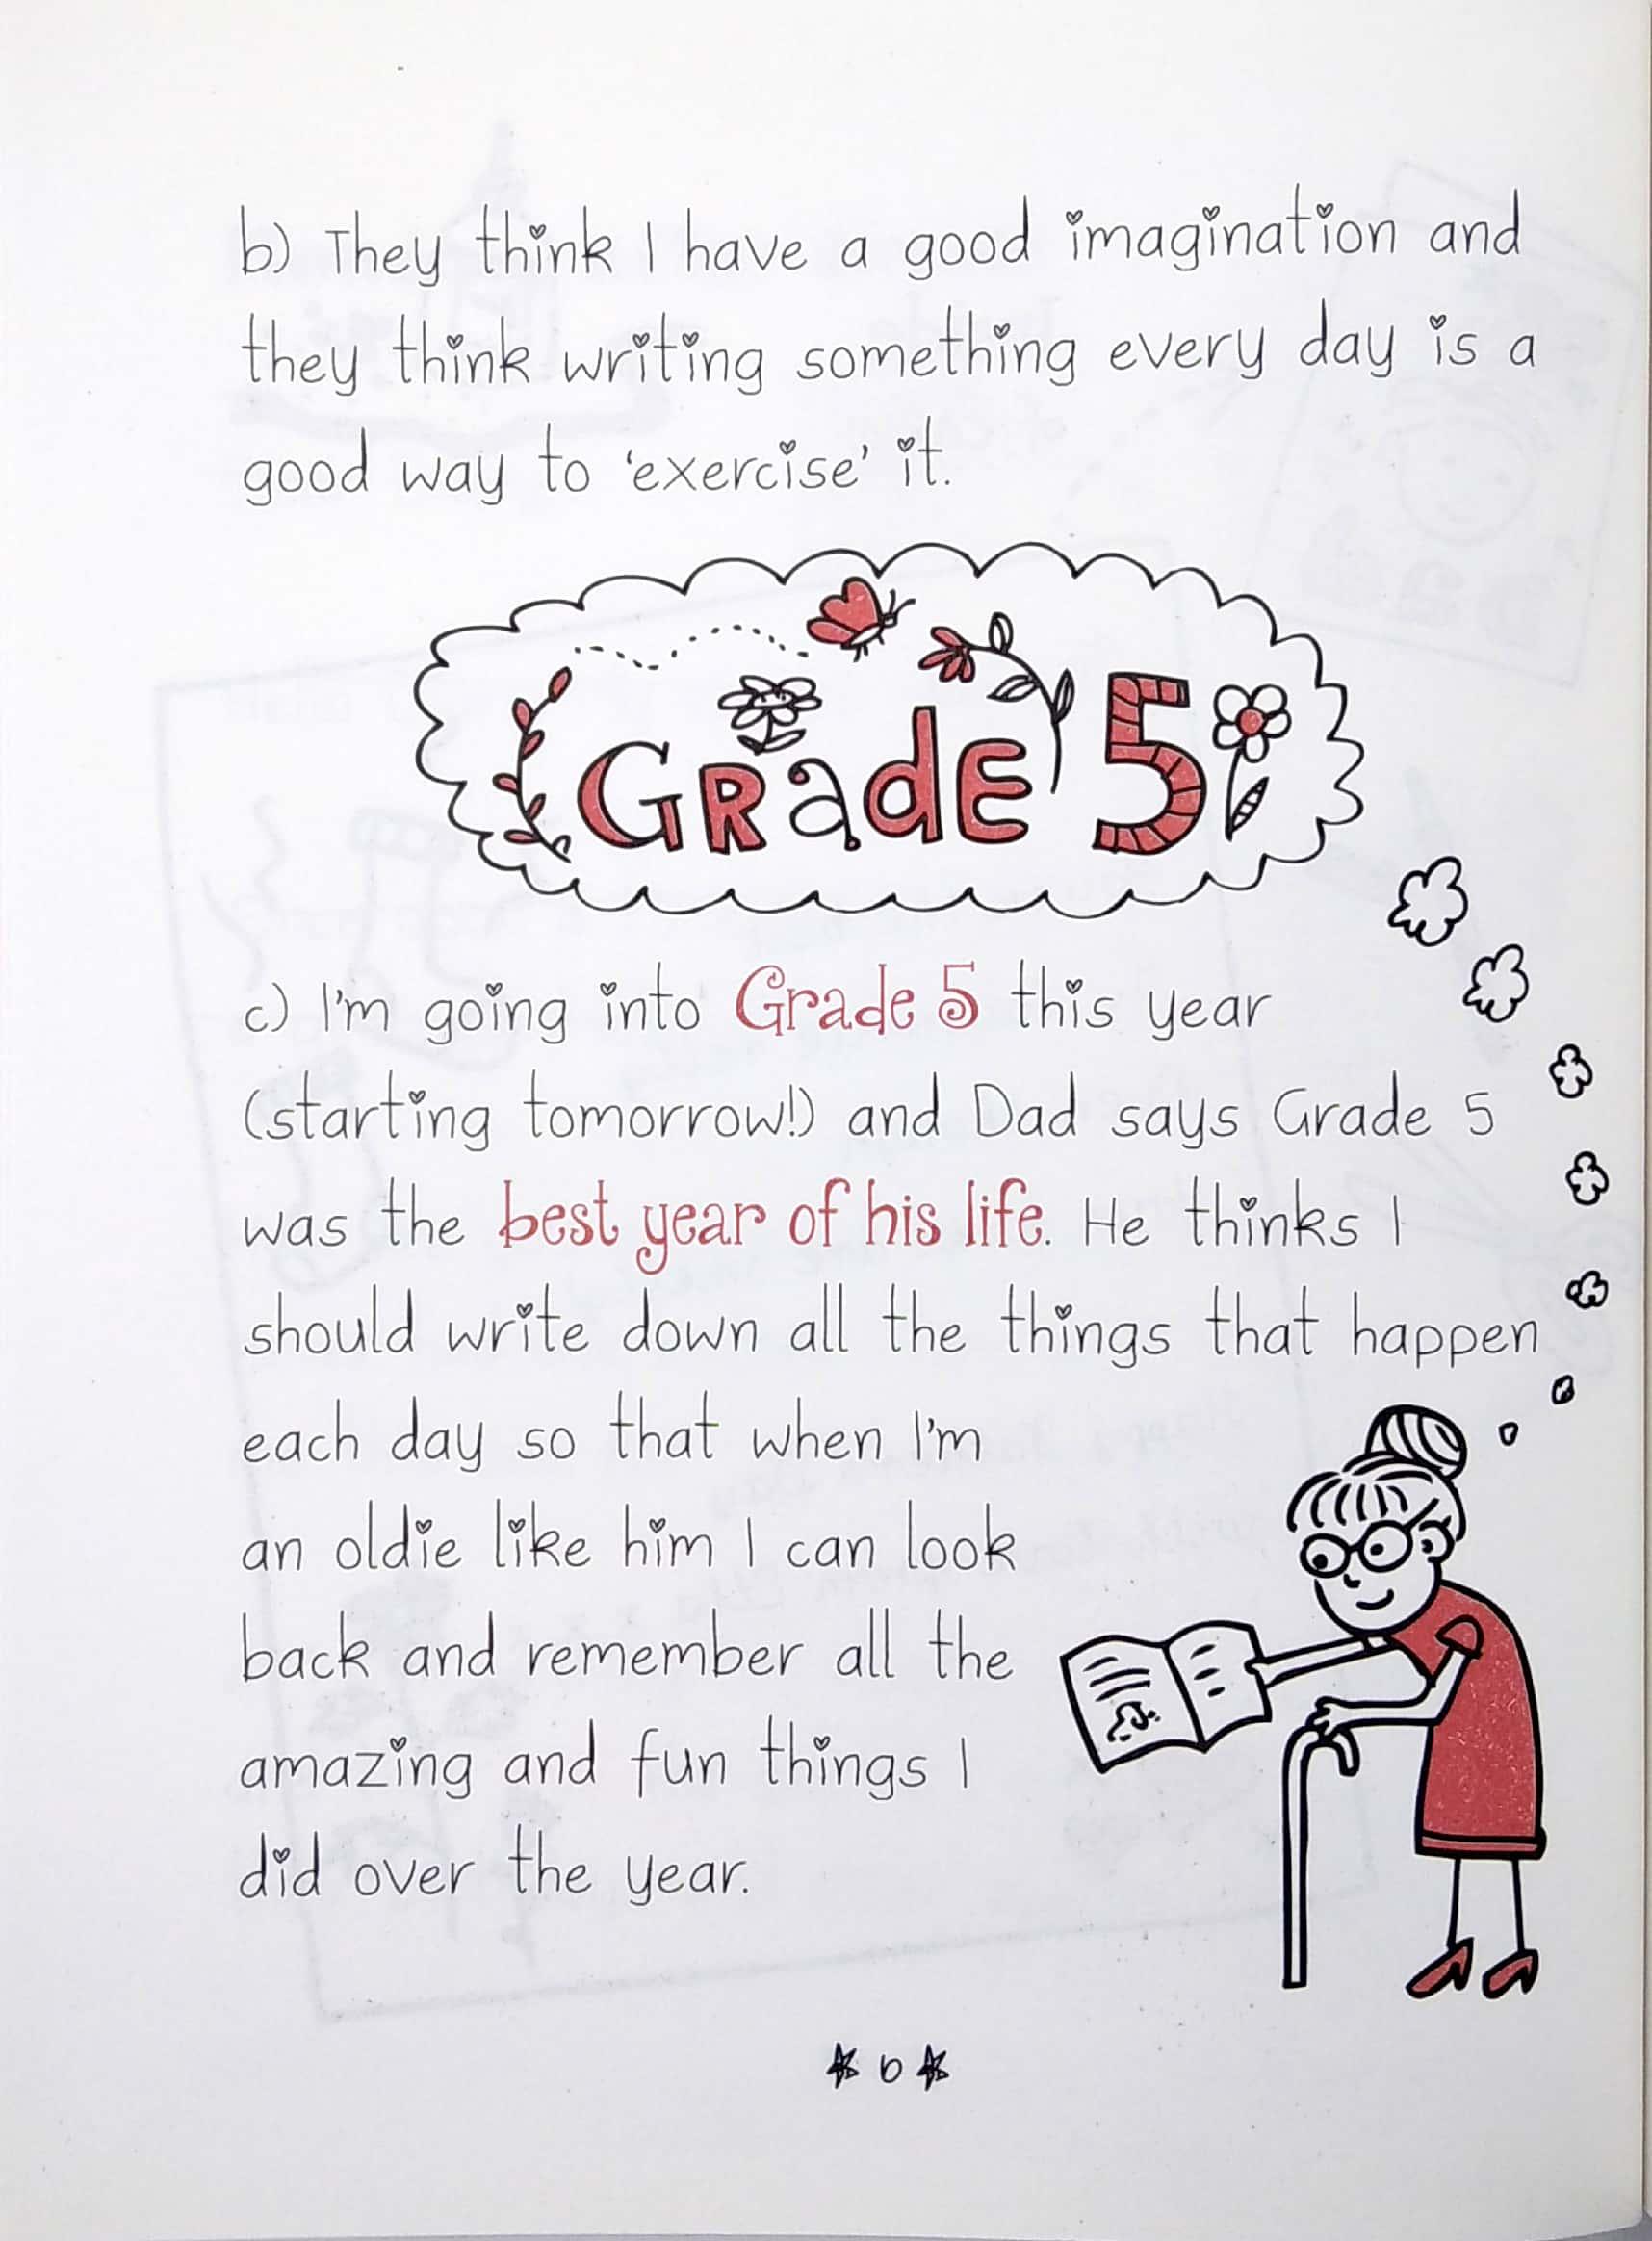 b) They think I have a good imagination and
they think writing something every day is a
good way to ‘exercise’ it.
GRadE 5
c) I'm going into Grade 5 this year
(starting tomorrow!) and Dad says Grade 5
was the best year of his life. He thinks I
should write down all the things that happen
each day so that when I'm
an oldie like him I can look
back and remember all the
amazing and fun things I
did over the year.
6